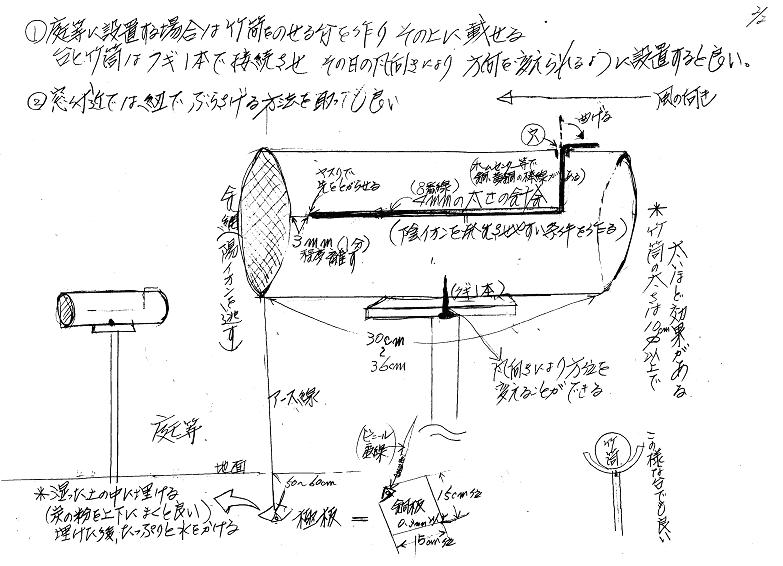 2/2
① 庭等に設置する場合は竹筒をのせる台を作り その上に載せる
台と竹筒はクギ1本で接続させ その日の風向きにより 方向を変えられるように設置すると良い。
② 窓付近では紐でぶらさげる方法を取っても良い
風の向き
曲げる
穴
ヤスリで
先をとがらせる
ホームセンター等で
(8番線)
4mmの太さの針金
(陰イオンを発生させやすい条件を作る)
3mm(1分)
程度離す
金網(陽イオンを逃す)
(クギ1本)
30cm
〜
36cm
風向きにより方位を
変えることができる
*竹筒の太さは10cm以上で
太いほど効果がある
アース線
庭等
地面
50〜60cm
*湿った土の中に埋ける
(炭の粉を上下にまくと良い)
埋けた後、たっぷりと水をかける
極板 =
(ビニール
電線)
銅板
0.3mm以上
15cm位
15cm位
竹筒
この様な台でも良い